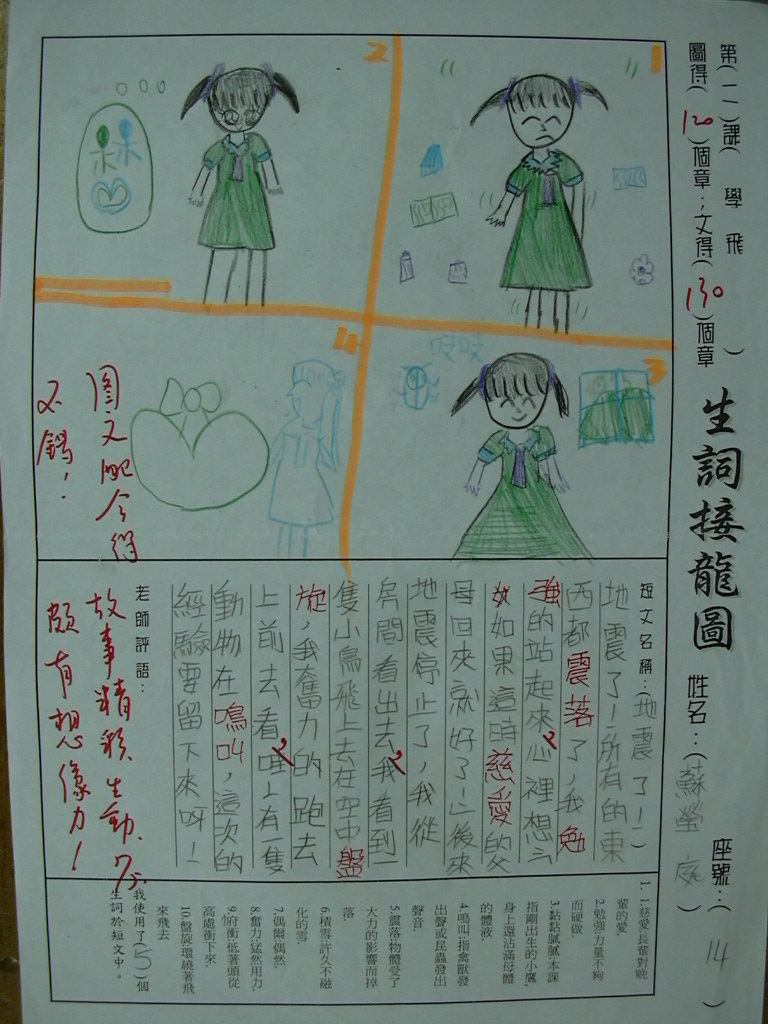 第(一一)課(學飛)
圖得(120)個章；文得(130)個章
生詞接龍圖 姓名：(蘇瑩庭) 座號：(14)
1
2
3
吱吱
4
短文名稱：(地震了！)
地震了！所有的東
西都震落了，我勉
強的站起來，心裡想：
如果這時慈愛的父
母回來就好了！」後來
地震停止了，我從
房間看出去，我看到一
隻小鳥飛上去在空中盤
旋，我奮力的跑去
上前去看，哇上有一隻
動物在鳴叫，這次的
經驗要留下來呀！
老師評語：
圖文配合得
不錯！
故事精彩生動，
頗有想像力！
1. 1慈愛:長輩對晚
輩的愛
2.勉強:力量不夠
而硬做.
3.黏黏膩膩:本課
指剛出生的小鷹,
身上還沾滿母體
的體液
4.鳴叫:指禽獸發
出聲或昆蟲發出
聲音.
5.震落物體受了
大力的影響而掉
落.
6.積雪:許久不融
化的雪.
7.偶爾:偶然.
8.奮力:猛然用力.
9.俯衝:低著頭從
高處衝下來.
10.盤旋:環繞著飛
來飛去
我使用了(5)個
生詞於短文中。